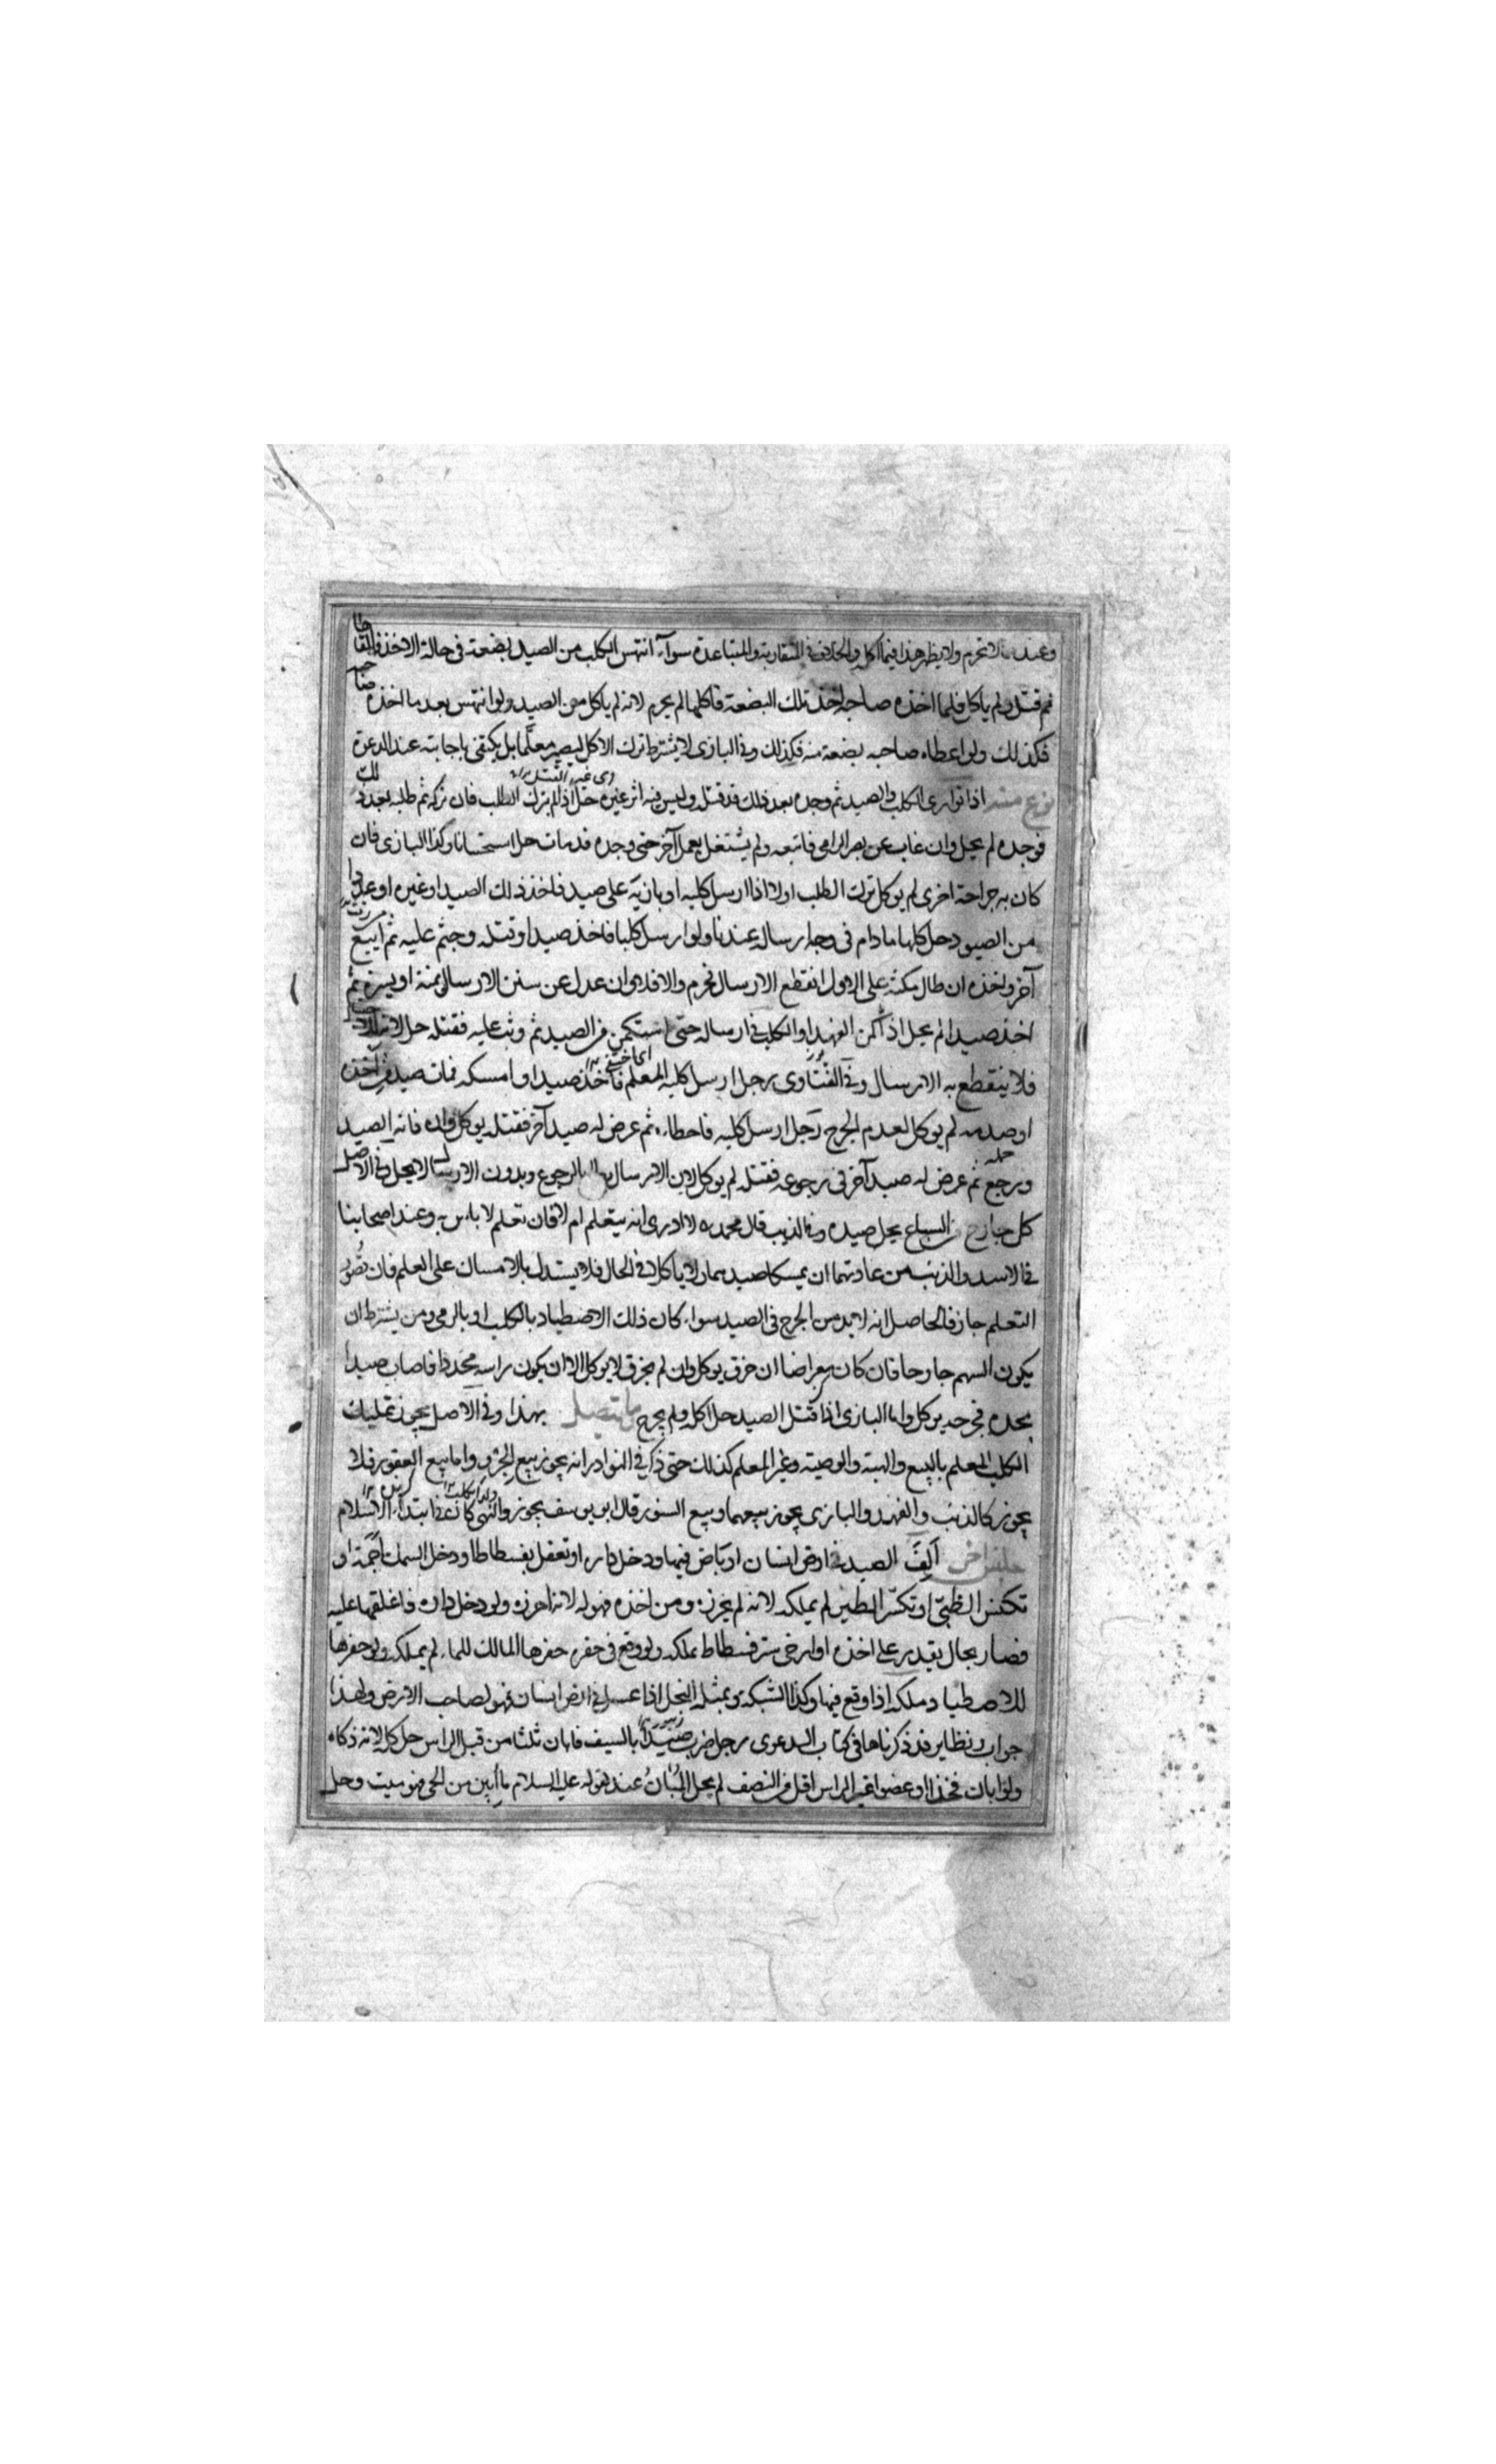 وعندهما لا تحرم ولا يظهر هذا فيما اكله والخلاف في المتقاربة والمتباعدة سواء انتهس الكلب من الصيد بضعة في حالة الاخذ فالقاها
ثم قتل ولم ياكل فلما اخذه صاحبه اخذ تلك البضعة فاكلها لم يحرم لانه لم ياكل من الصيد ولو انتهس بعد ما اخذه صاحبه
فكذلك ولو اعطاه صاحبه بضعة منه فكذلك وفي البازي لا يشترط ترك الاكل ليصير معلما بل يكتفى باجابته عند الدعوة
نوع منه اذا توارى الكلب والصيد ثم وجده بعد ذلك قد قتل وليس فيه اثر غيره حل اذا لم يترك الطلب فان تركه ثم طلبه بعد ذلك
فوجده لم يحل وان غاب عن بصر الرامي فاتبعه ولم يشتغل بعمل آخر حتى وجده قد مات حل استحسانا وكذا البازي فان
كان به جراحة اخرى لم يوكل ترك الطلب اولا اذا ارسل كلبه او بازيه على صيد فاخذ ذلك الصيد او غيره او عددا
من الصيود حل كلها ما دام في وجه ارساله عندنا ولو ارسل كلبا فاخذ صيدا وقتله وجثم عليه ثم اتبع
آخر واخذه ان طال مكثه على الاول انقطع الارسال فحرم والا فلا وان عدل عن سنن الارسال يمنة او يسرة ثم
اخذ صيدا لم يحل اذا كمن الفهد او الكلب في ارساله حتى استمكن من الصيد ثم وثب عليه فقتله حل لانه
فلا ينقطع به الارسال وفي الفتاوى رجل ارسل كلبه المعلم فاخذ صيدا وامسكه فمات صيد من اخذه
او صدمه لم يوكل لعدم الجرح رجل ارسل كلبه فاخطاء ثم عرض له صيد آخر فقتله يوكل وان فاته الصيد
ورجع ثم عرض له صيد آخر في رجوعه فقتله لم يوكل لان الارسال بطل بالرجوع وبدون الارسال لا يحل وفي الاصل
كل جارح من السباع يحل صيده وفي الذيب قال محمد رہ لا ادرى انه يتعلم ام لا فان تعلم لا باس به وعند اصحابنا
في الاسد والذئب من عادتهما ان يمسكا صيدهما ولا ياكلا في الحال فلا يستدل بالامساك على العلم فان تصور
التعلم جاز فالحاصل انه لا بد من الجرح في الصيد سواء كان ذلك الاصطياد بالكلب او بالرمي ومن يشترط ان
يكون السهم جارحا فان كان معراضا ان خرق يوكل وان لم يخرق لا يوكل الا ان يكون راسه محددا فاصاب صيدا
بحده فجرحه يوكل واما البازي اذا قتل الصيد حل اكله ولم يجرح ما يتصل بهذا وفي الاصل يجوز تمليك
الكلب المعلم بالبيع والهبة والوصية وغير المعلم كذلك حتى ذكر في النوادر انه يجوز بيع الجرو واما بيع العقور فلا
يجوز كالذئب والفهد والبازي يجوز بيعهما وبيع السنور قال ابو يوسف يجوز والنهي كان في ابتداء الاسلام
جنس آخر ألف الصيد في ارض انسان او باض فيها ودخل داره او تعقل بفسطاط او دخل السمك اجمة او
تكنس الظبي او تكسر الطير لم يملكه لانه لم يحرزه ومن اخذه فهو له لانه احرزه ولو دخل داره فاغلقها عليه
فصار بحال يقدر على اخذه او ارخى ستر فسطاط ملكه ولو وقع في حفرة حفرها المالك للماء لم يملكه ولو حفرها
للاصطياد ملكه اذا وقع فيها وكذا الشبكة وبمثله النحل اذا عسل في ارض انسان فهو لصاحب الارض ولهذا
جواب ونظاير قد ذكرناها في كتاب الدعوى رجل ضرب صيدا بالسيف فابان ثلثا من قبل الراس حل كله لانه ذكاه
ولو ابان فخذا او عضوا غير الراس اقل من النصف لم يحل المبان عند لقوله عليه السلام ما ابين من الحي فهو ميت وحل